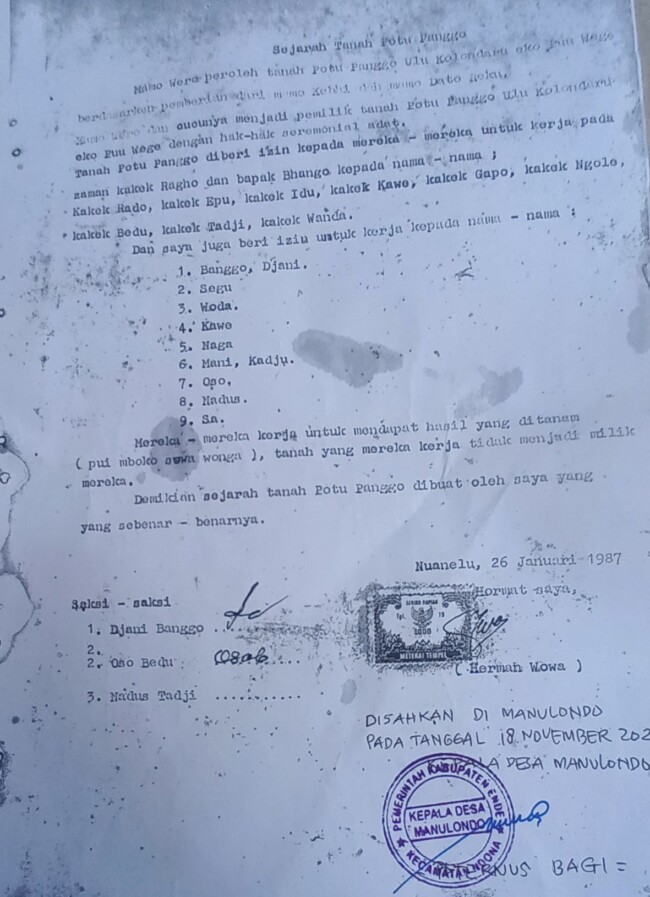 Sejarah Tanah Potu Panggo
Mamo Wero peroleh tanah Potu Panggo Ulu Kolondaru eko Puu Wege
berdasarkan pemberian dari mamo Kebbi dan mamo Dato
dan cucunya menjadi pemilik tanah Potu Panggo Ulu Kolondaru
eko Puu Wege dengan hak-hak seremonial adat.
Tanah Potu Panggo diberi izin kepada mereka - mereka untuk kerja pada
zaman kakek Ragho dan bapak Bhango kepada nama - nama ;
Kakek Rado, kakek Epu, kakek Idu, kakek Kawe, kakek Gapo, kakek Ngole,
kakek Bedu, kakek Tadji, kakek Wanda.
Dan saya juga beri izin untuk kerja kepada nama - nama ;
1. Banggo, Djani.
2. Segu
3. Woda.
4. Kawe
5. Naga
6. Mani, Kadju.
7. Oso,
8. Nadus.
9. Sa.
Mereka - mereka kerja untuk mendapat hasil yang ditanam
( pui mboko sewa wonga ), tanah yang mereka kerja tidak menjadi milik
mereka.
Demikian sejarah tanah Potu Panggo dibuat oleh saya yang
yang sebenar - benarnya.
Nuanelu, 26 Januari 1987
Hormat saya,
Saksi - saksi
1. Djani Banggo ...
2.
2. Oso Bedu ....
3. Nadus Tadji ...........
1000
METERAI TEMPEL
( Hermah Wowa )
DISAHKAN DI MANULONDO
PADA TANGGAL 18 NOVEMBER 202
KEPALA DESA MANULONDO
PEMERINTAH KABUPATEN ENDE
KEPALA DESA
MANULONDO
KECAMATAN NDONA
BAGI =